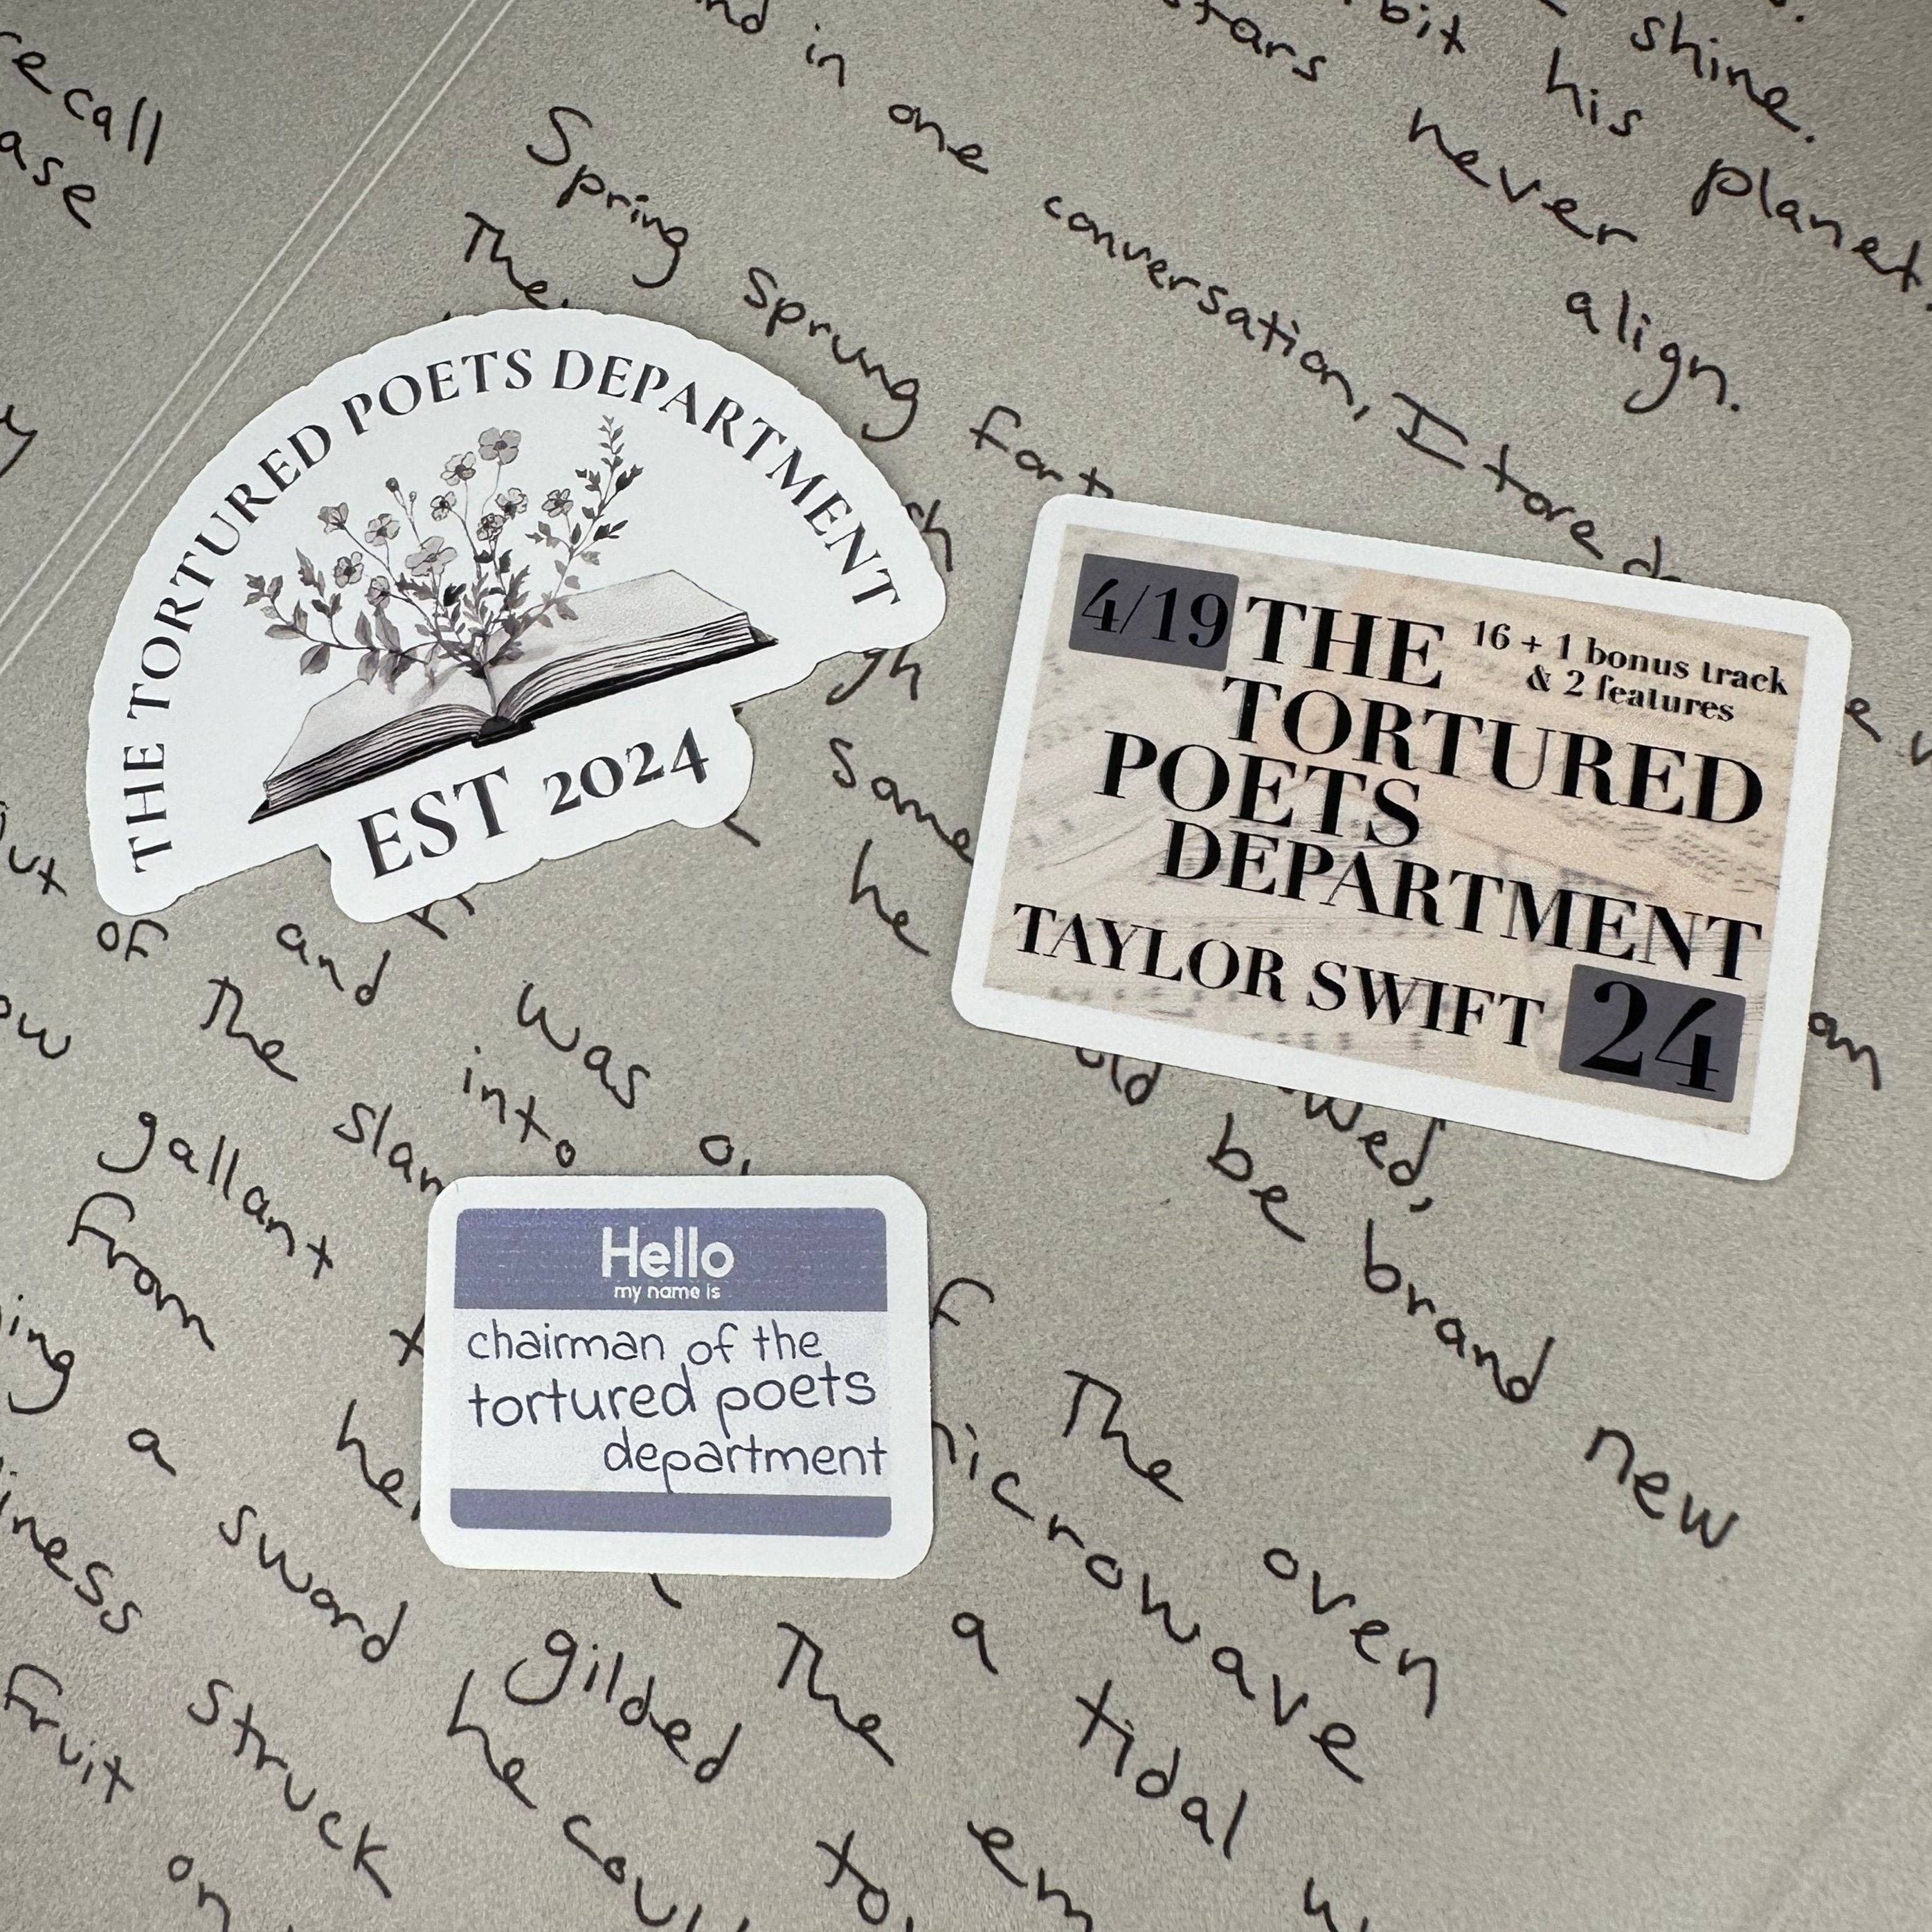 shine.
bit his planet
stars never align.
in one conversation, I tore d
Spring sprung fort
The
recall
ease
THE TORTURED POETS DEPARTMENT
EST 2024
4/19
THE
16 + 1 bonus track
& 2 features
TORTURED
POETS
DEPARTMENT
TAYLOR SWIFT
24
same
he
out of the slam
and was
into
gallant
From
be brand new
Hello
my name is
chairman of the
tortured poets
department
The oven
microwave
a tidal
a sword
gilded
The
Fruit struck
he
on